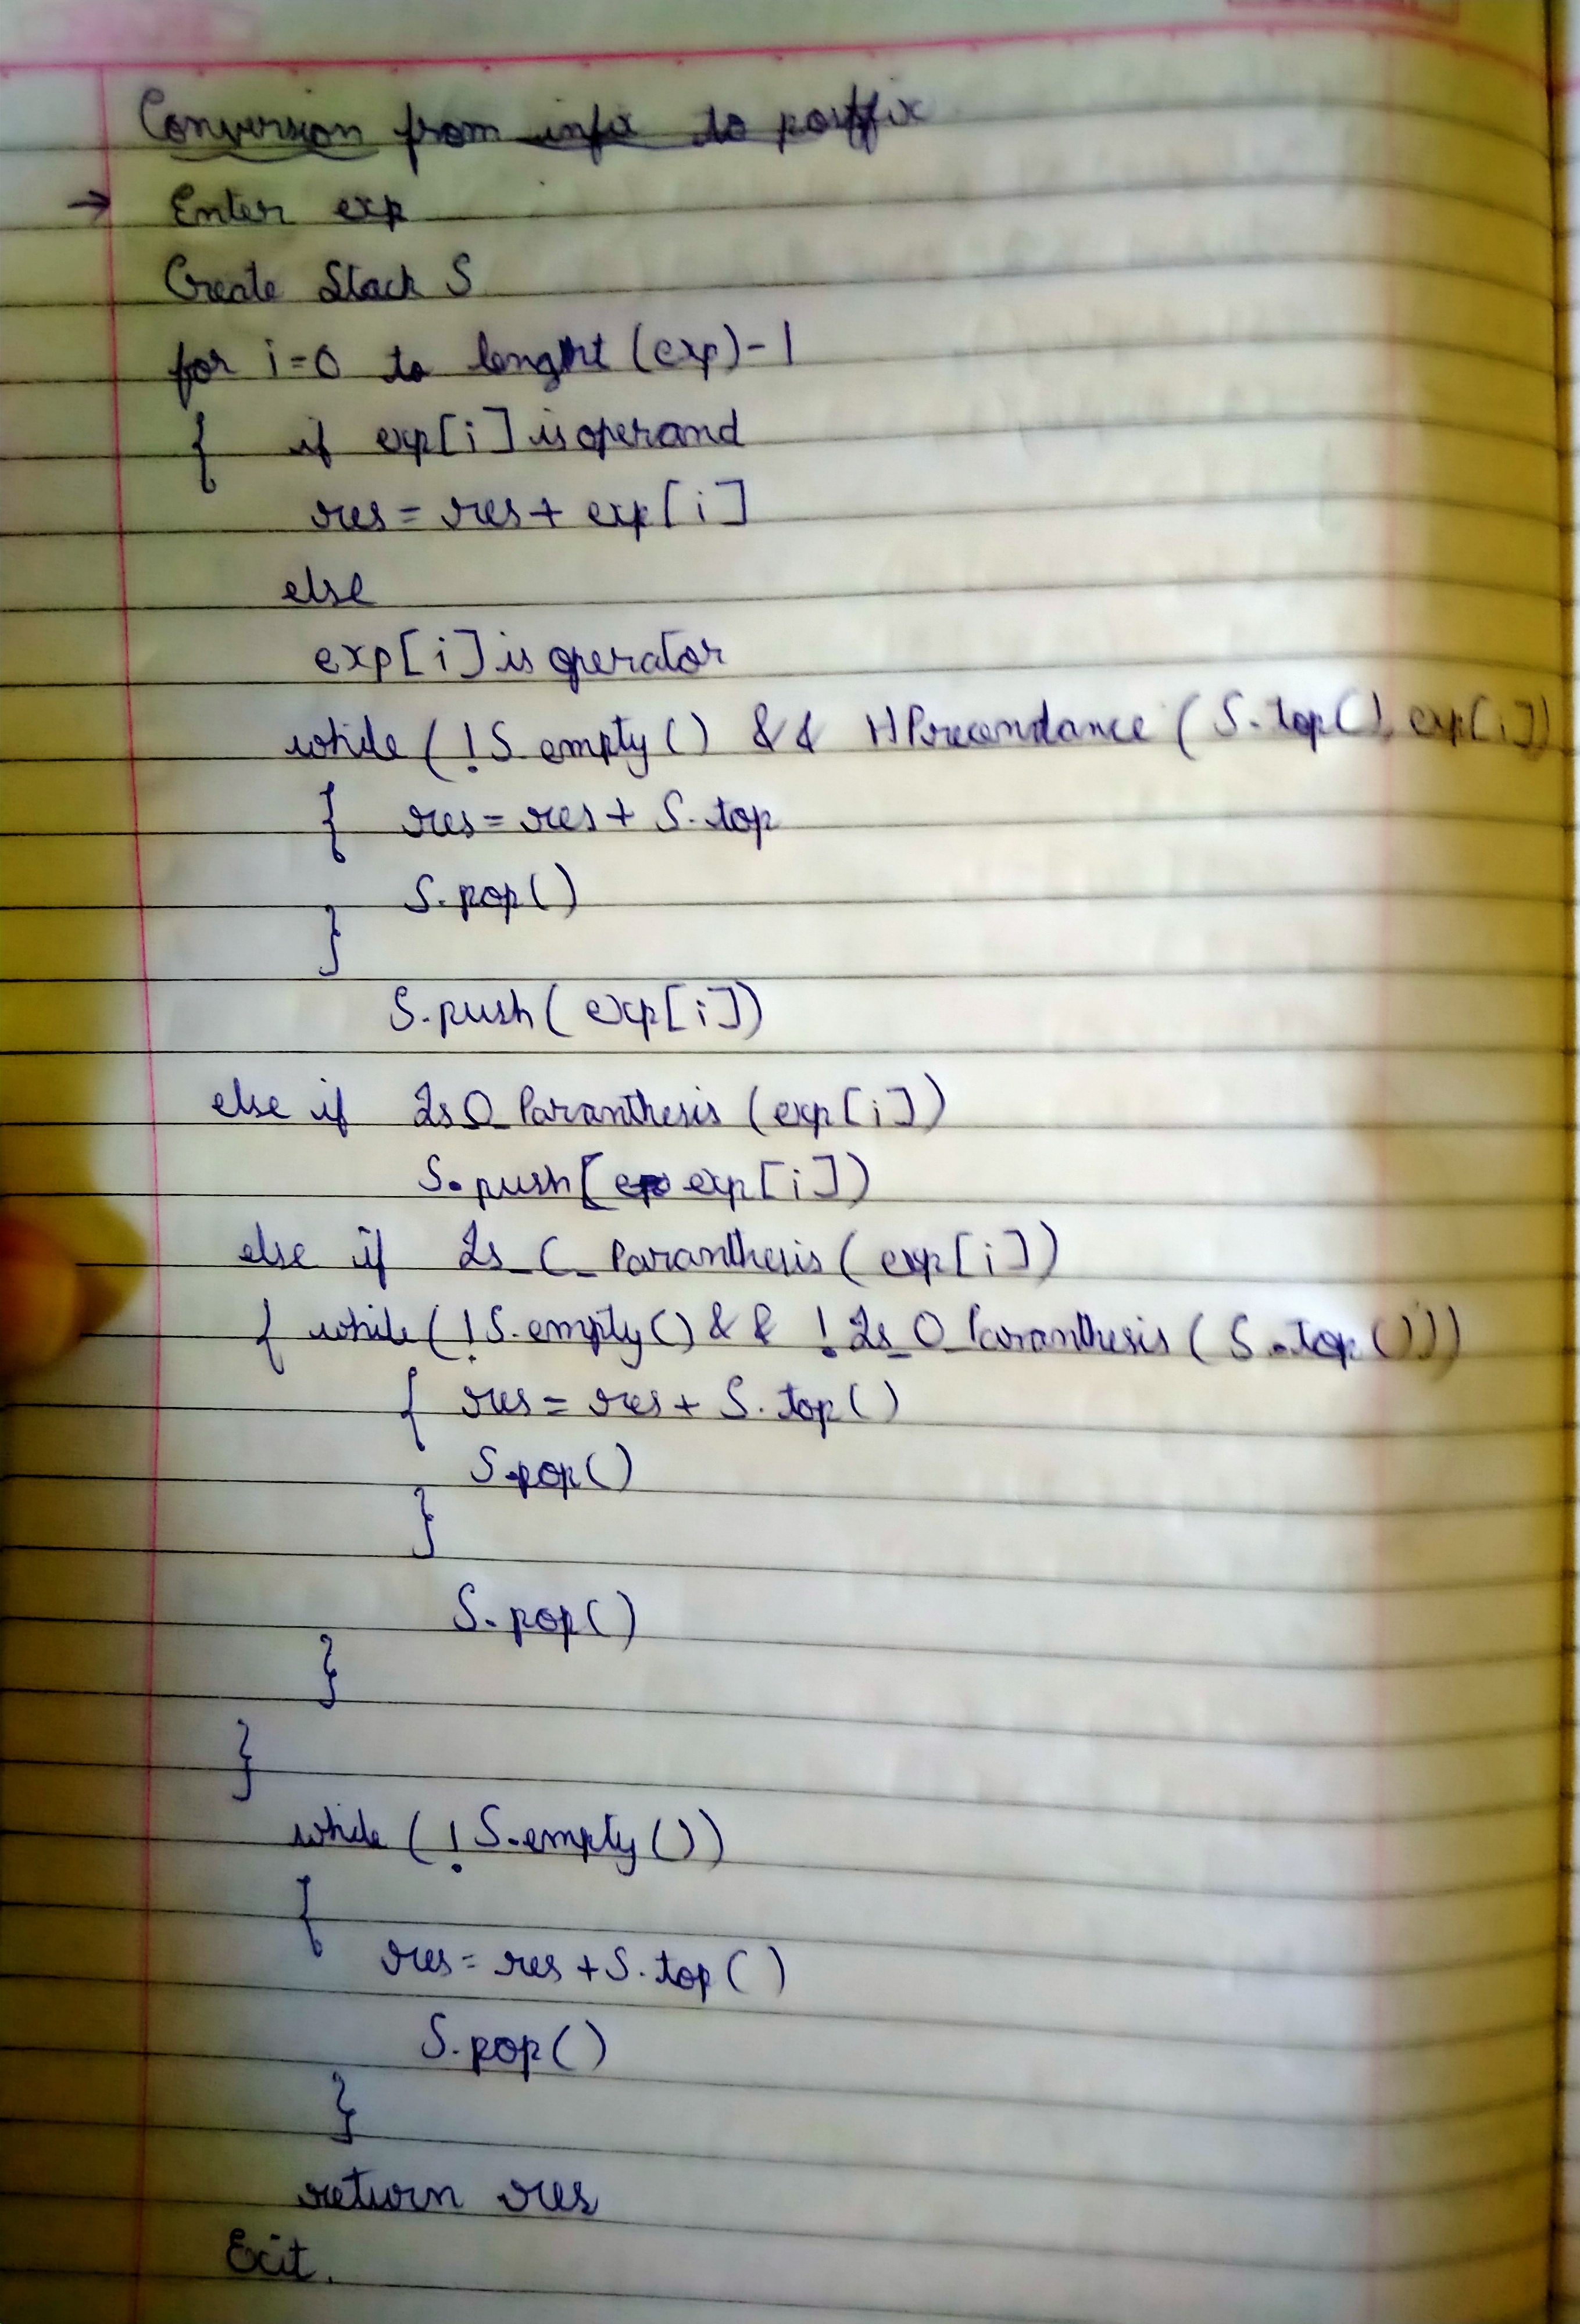 Conversion from infix to postfix
→ Enter exp
Create Stack S
for i=0 to lenght (exp)-1
{ if exp[i] is operand
res = res + exp[i]
else
exp[i] is operator
while ( !S.empty() && HPrecendance (S.top(), exp[i])
{ res = res + S.top
S.pop()
}
S.push( exp[i])
else if Is_O_Paranthesis (exp[i])
S.push[ exp[i])
else if Is_C_Paranthesis ( exp[i])
{ while ( !S.empty() && !Is_O_Paranthesis ( S.top()))
{ res = res + S.top()
S.pop()
}
S.pop()
}
}
while ( !S.empty())
{
res = res + S.top()
S.pop()
}
return res
Exit.